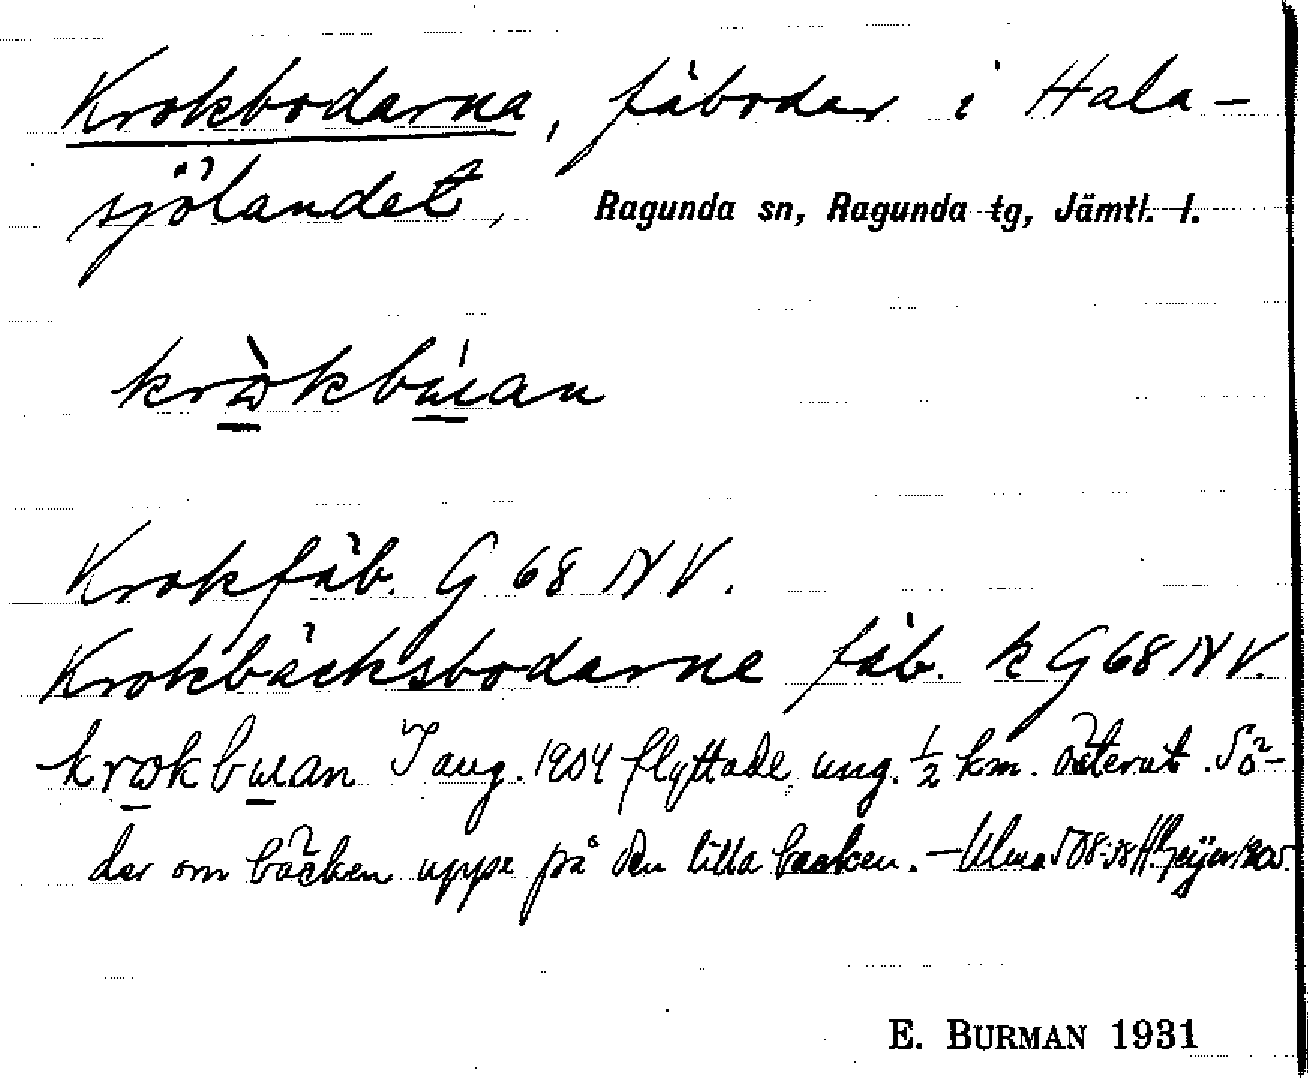 Krokbodarna, fäbodar i Hala-
sjölandet, Ragunda sn, Ragunda tg, Jämtl. l.
kròkbúan
Krokfäb. G 68 NV.
Krokbäcksbodarne fäb. k G 68 NV.
krokbuan I aug. 1904 flyttade ung. ½ km. österut. Sö-
der om bäcken uppe på den lilla backen. – Ulma 508:38 H. Geijer 1905.
E. BURMAN 1931